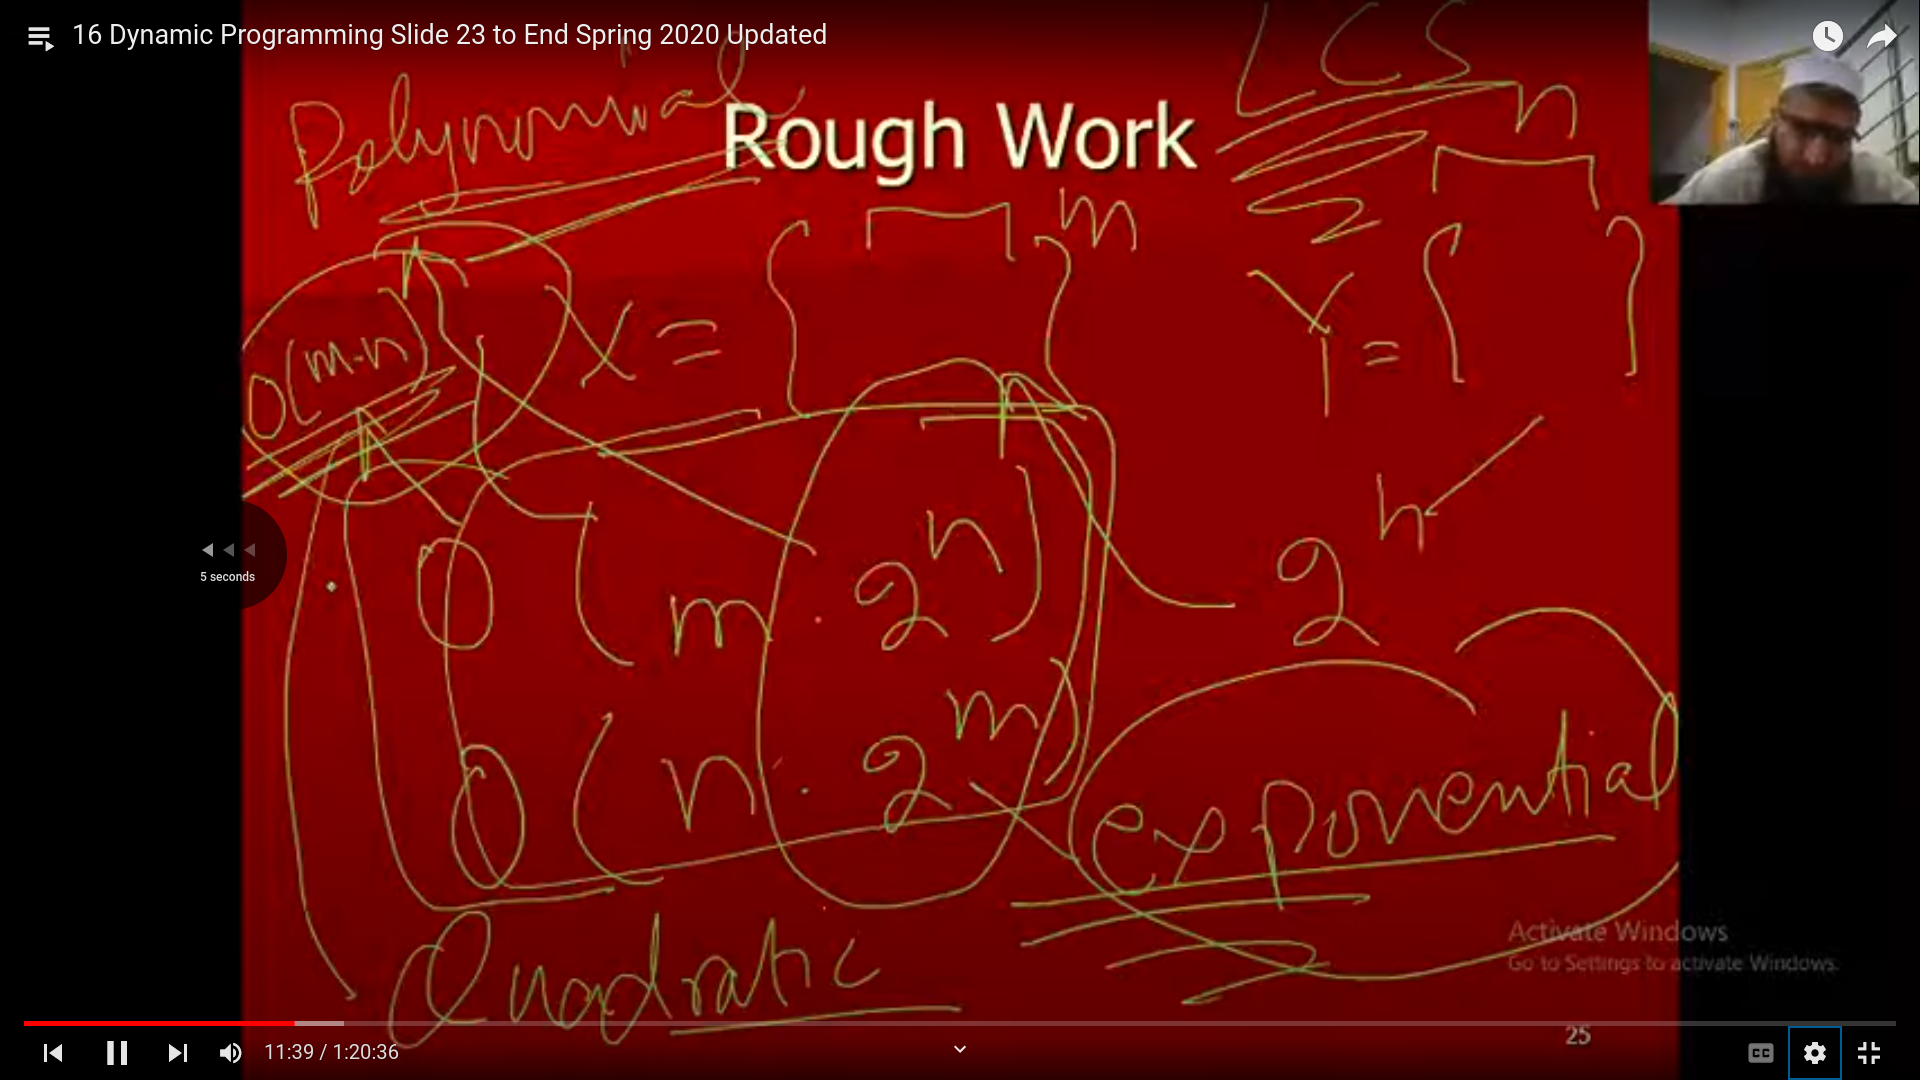 16 Dynamic Programming Slide 23 to End Spring 2020 Updated
LCS
Polynomial
Rough Work
n
m
X = { }
Y = { }
O(m.n)
O(m.2^n)
2^n
O(n.2^m)
exponential
Quadratic
5 seconds
Activate Windows
Go to Settings to activate Windows.
25
11:39 / 1:20:36
CC